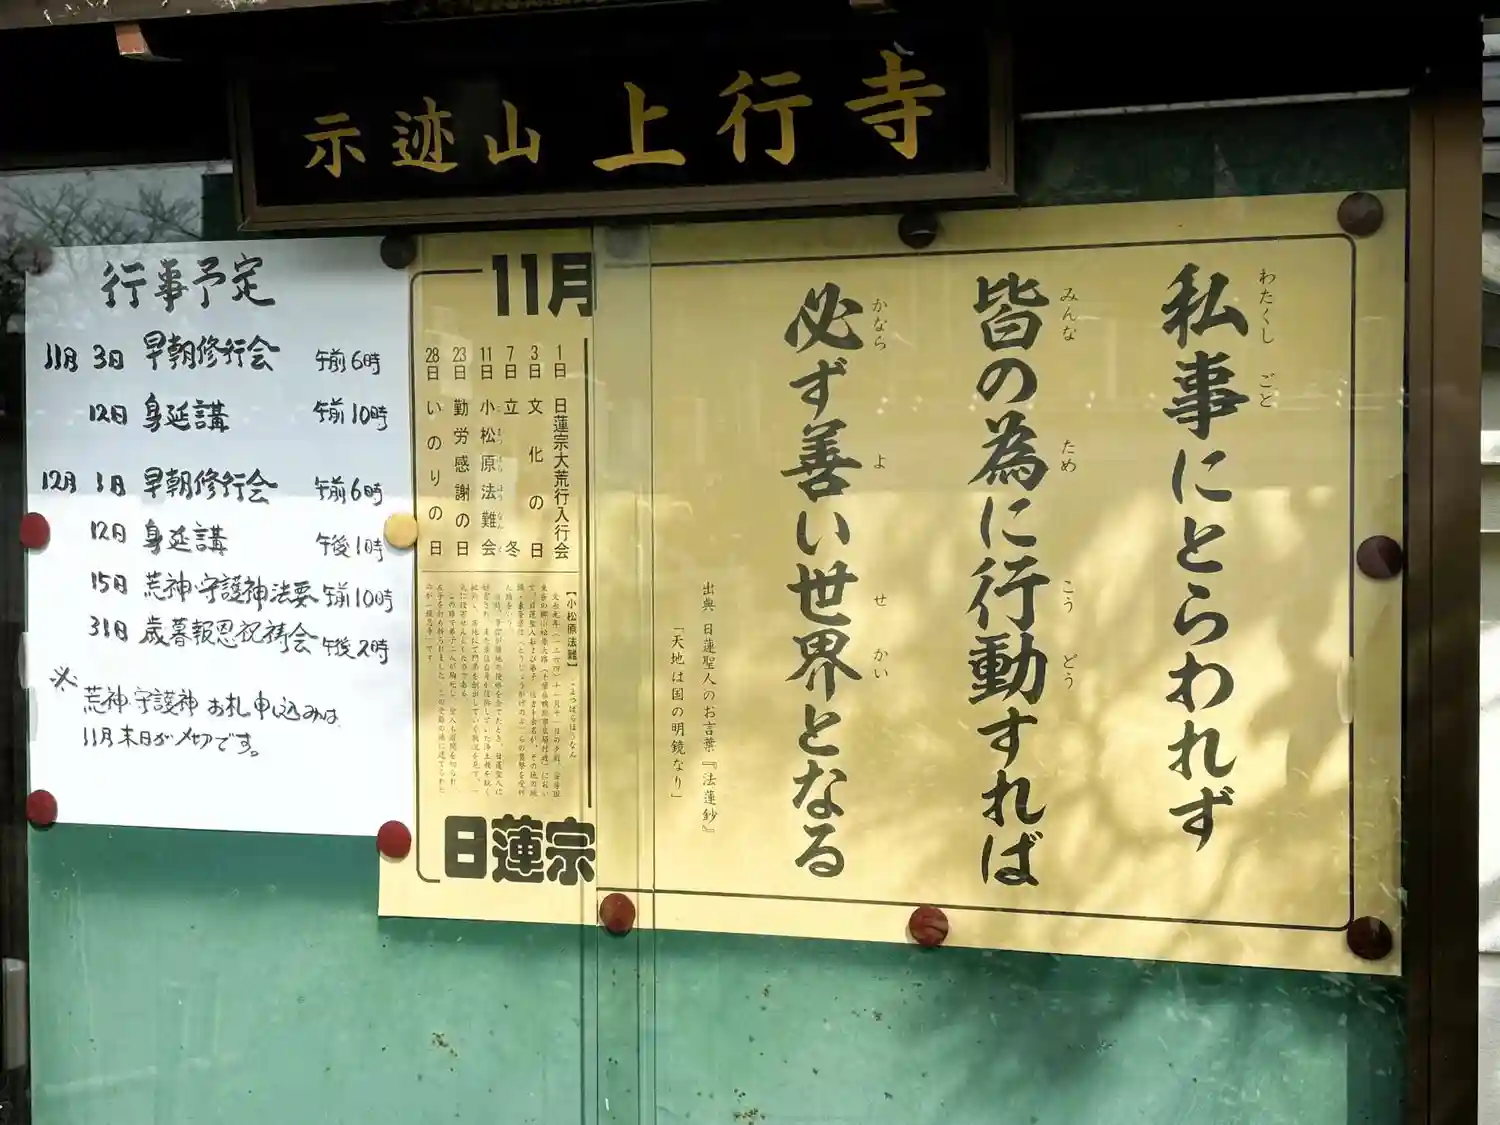 示迹山 上行寺
行事予定
11月 3日 早朝修行会 午前6時
12日 身延講 午前10時
12月 1日 早朝修行会 午前6時
12日 身延講 午後1時
15日 荒神・守護神法要 午前10時
31日 歳暮報恩祝祷会 午後2時
※ 荒神・守護神お札申し込みは
11月末日がメ切です。
私事にとらわれず
わたくし ごと
皆の為に行動すれば
みんな ため こう どう
必ず善い世界となる
かなら よ せ かい
出典 日蓮聖人のお言葉『法蓮鈔』
「天地は国の明鏡なり」
11月
1日 日蓮宗大荒行入行会
3日 文化の日
7日 立冬
11日 小松原法難会
23日 勤労感謝の日
28日 いのりの日
【小松原法難】
日蓮宗